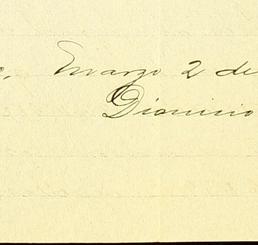 Marzo 2 de
Dionisio